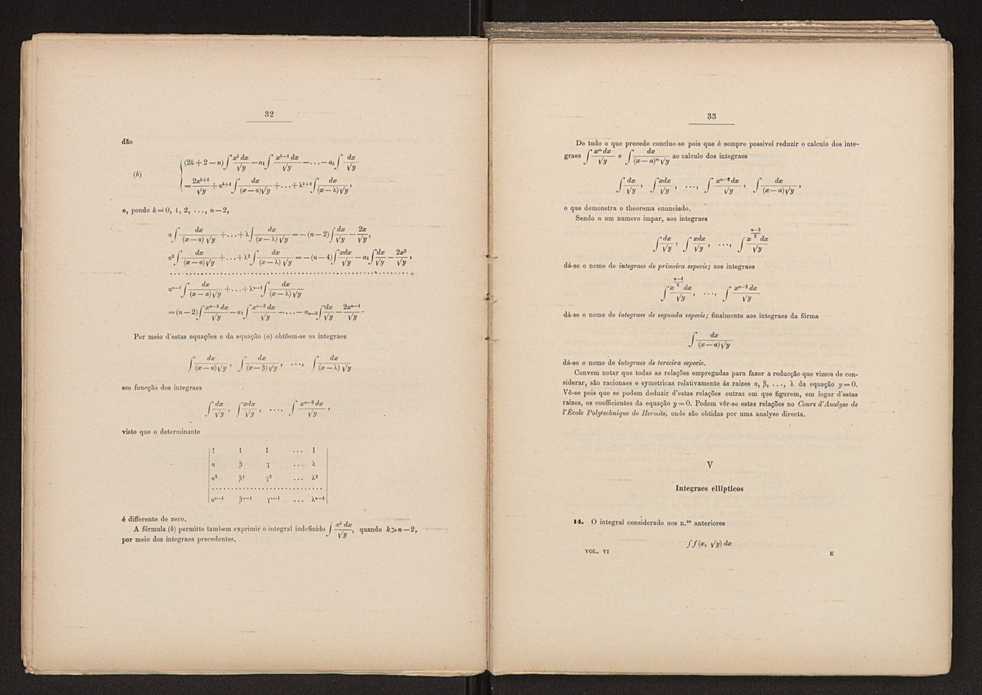 32
dão
(b) (2k + 2 − n) ∫ x^k dx / √y − a₁ ∫ x^{k−1} dx / √y − . . . − a_k ∫ dx / √y
= 2x^{k+1} / √y + α^{k+1} ∫ dx / (x − α)√y + . . . + λ^{k+1} ∫ dx / (x − λ)√y ,
e, pondo k = 0, 1, 2, . . ., n − 2,
α ∫ dx / (x − α)√y + . . . + λ ∫ dx / (x − λ)√y = − (n − 2) ∫ dx / √y − 2x / √y ,
α² ∫ dx / (x − α)√y + . . . + λ² ∫ dx / (x − λ)√y = − (n − 4) ∫ xdx / √y − a₁ ∫ dx / √y − 2x² / √y ,
α^{n−1} ∫ dx / (x − α)√y + . . . + λ^{n−1} ∫ dx / (x − λ)√y
= (n − 2) ∫ x^{n−2} dx / √y − a₁ ∫ x^{n−3} dx / √y − . . . − a_{n−2} ∫ dx / √y − 2x^{n−1} / √y .
Por meio d'estas equações e da equação (a) obtêem-se os integraes
∫ dx / (x − α)√y , ∫ dx / (x − β)√y , . . ., ∫ dx / (x − λ)√y
em funcção dos integraes
∫ dx / √y , ∫ xdx / √y , . . ., ∫ x^{n−2} dx / √y ,
visto que o determinante
1 1 1 . . . 1
α β γ . . . λ
α² β² γ² . . . λ²
α^{n−1} β^{n−1} γ^{n−1} . . . λ^{n−1}
é differente de zero.
A fórmula (b) permitte tambem exprimir o integral indefinido ∫ x^k dx / √y , quando k > n − 2,
por meio dos integraes precedentes.
33
De tudo o que precede conclue-se pois que é sempre possivel reduzir o calculo dos inte-
graes ∫ x^m dx / √y e ∫ dx / (x − a)^m √y ao calculo dos integraes
∫ dx / √y , ∫ xdx / √y , . . ., ∫ x^{n−2} dx / √y , ∫ dx / (x − a)√y ,
o que demonstra o theorema enunciado.
Sendo n um numero impar, aos integraes
∫ dx / √y , ∫ xdx / √y , . . ., ∫ x^{(n−3)/2} dx / √y
dá-se o nome de integraes de primeira especie; aos integraes
∫ x^{(n−1)/2} dx / √y , . . ., ∫ x^{n−2} dx / √y
dá-se o nome de integraes de segunda especie; finalmente aos integraes da fórma
∫ dx / (x − a)√y
dá-se o nome de integraes de terceira especie.
Convem notar que todas as relações empregadas para fazer a reducção que vimos de con-
siderar, são racionaes e symetricas relativamente ás raizes α, β, . . ., λ da equação y = 0.
Vê-se pois que se podem deduzir d'estas relações outras em que figurem, em logar d'estas
raizes, os coefficientes da equação y = 0. Podem vêr-se estas relações no Cours d'Analyse de
l'École Polytechnique de Hermite, onde são obtidas por uma analyse directa.
V
Integraes ellipticos
14. O integral considerado nos n.os anteriores
∫ f (x, √y) dx
VOL. VI E